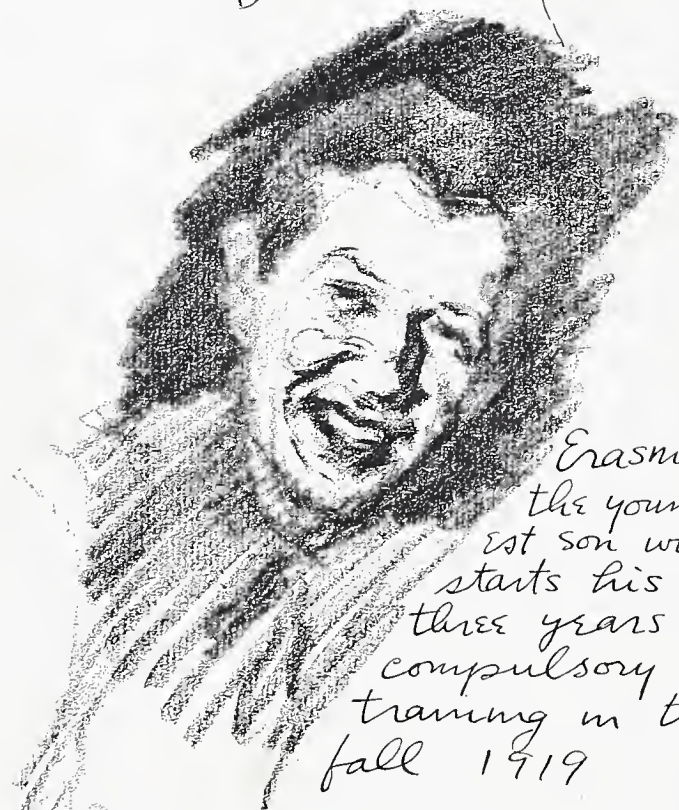 the
est son
starts his
three years
compulsory
training in
fall 1919